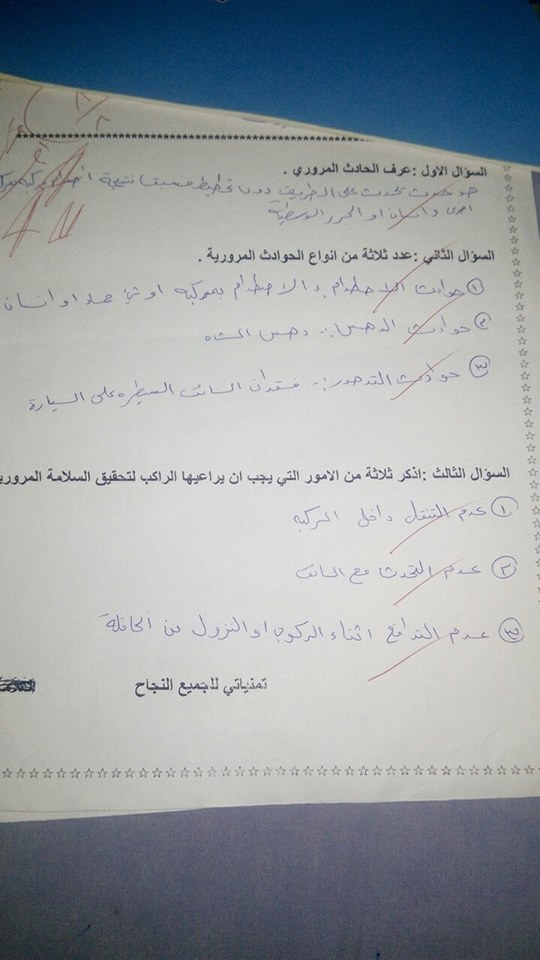 ٨
٨
السؤال الاول :عرف الحادث المروري .
هو حدوث يحدث على الطريق دون تخطيط مسبق نتيجة اصطدام مركبه بمركبة
اخرى وانسان او الجزر الوسطية
السؤال الثاني :عدد ثلاثة من انواع الحوادث المرورية .
١ حوادث الاصطدام : الاصطدام بمركبه او شئ جماد او انسان
٢ حوادث الدهس :- دهس المشاه
٣ حوادث التدهور :- فقدان السائق السيطره على السيارة
السؤال الثالث :اذكر ثلاثة من الامور التي يجب ان يراعيها الراكب لتحقيق السلامة المرورية
١ عدم التنقل داخل المركبه
٢ عدم التحدث مع السائق
٣ عدم التدافع اثناء الركوب او النزول من الحافلة
تمنياتي للجميع النجاح